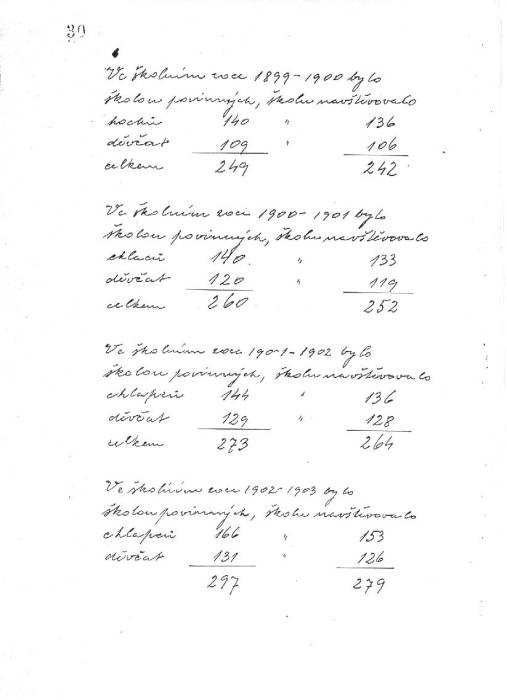 30
Ve školním roce 1899-1900 bylo
školou povinných, školu navštěvovalo
hochů 140 " 136
děvčat 109 " 106
celkem 249 242
Ve školním roce 1900-1901 bylo
školou povinných, školu navštěvovalo
chlapců 140 " 133
děvčat 120 " 119
celkem 260 252
Ve školním roce 1901-1902 bylo
školou povinných, školu navštěvovalo
chlapců 144 " 136
děvčat 129 " 128
celkem 273 264
Ve školním roce 1902-1903 bylo
školou povinných, školu navštěvovalo
chlapců 166 " 153
děvčat 131 " 126
297 279